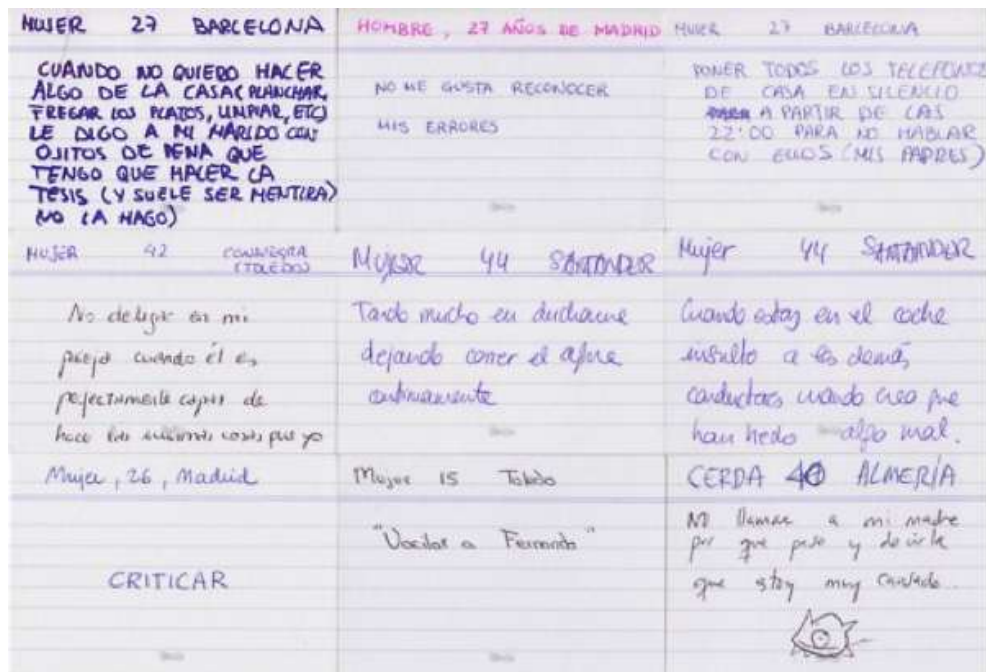 MUJER 27 BARCELONA
CUANDO NO QUIERO HACER
ALGO DE LA CASA (PLANCHAR,
FREGAR LOS PLATOS, LIMPIAR, ETC)
LE DIGO A MI MARIDO CON
OJITOS DE PENA QUE
TENGO QUE HACER LA
TESIS (Y SUELE SER MENTIRA)
NO LA HAGO)
HOMBRE, 27 AÑOS DE MADRID
NO ME GUSTA RECONOCER
MIS ERRORES
MUJER 27 BARCELONA
PONER TODOS LOS TELEFONOS
DE CASA EN SILENCIO
A PARTIR DE LAS
22'00 PARA NO HABLAR
CON ELLOS (MIS PADRES)
MUJER 42 CONSUEGRA
(TOLEDO)
No delegar en mi
pareja cuando él es
perfectamente capaz de
hacer las mismas cosas que yo
MUJER 44 SANTANDER
Tardo mucho en ducharme
dejando correr el agua
continuamente
Mujer 44 SANTANDER
Cuando estoy en el coche
insulto a los demás
conductores cuando creo que
han hecho algo mal.
Mujer, 26, Madrid
CRITICAR
Mujer 15 Toledo
"Vacilar a Fernando"
CERDA 40 ALMERÍA
NO llamar a mi madre
por que paso y decirle
que estoy muy cansado...